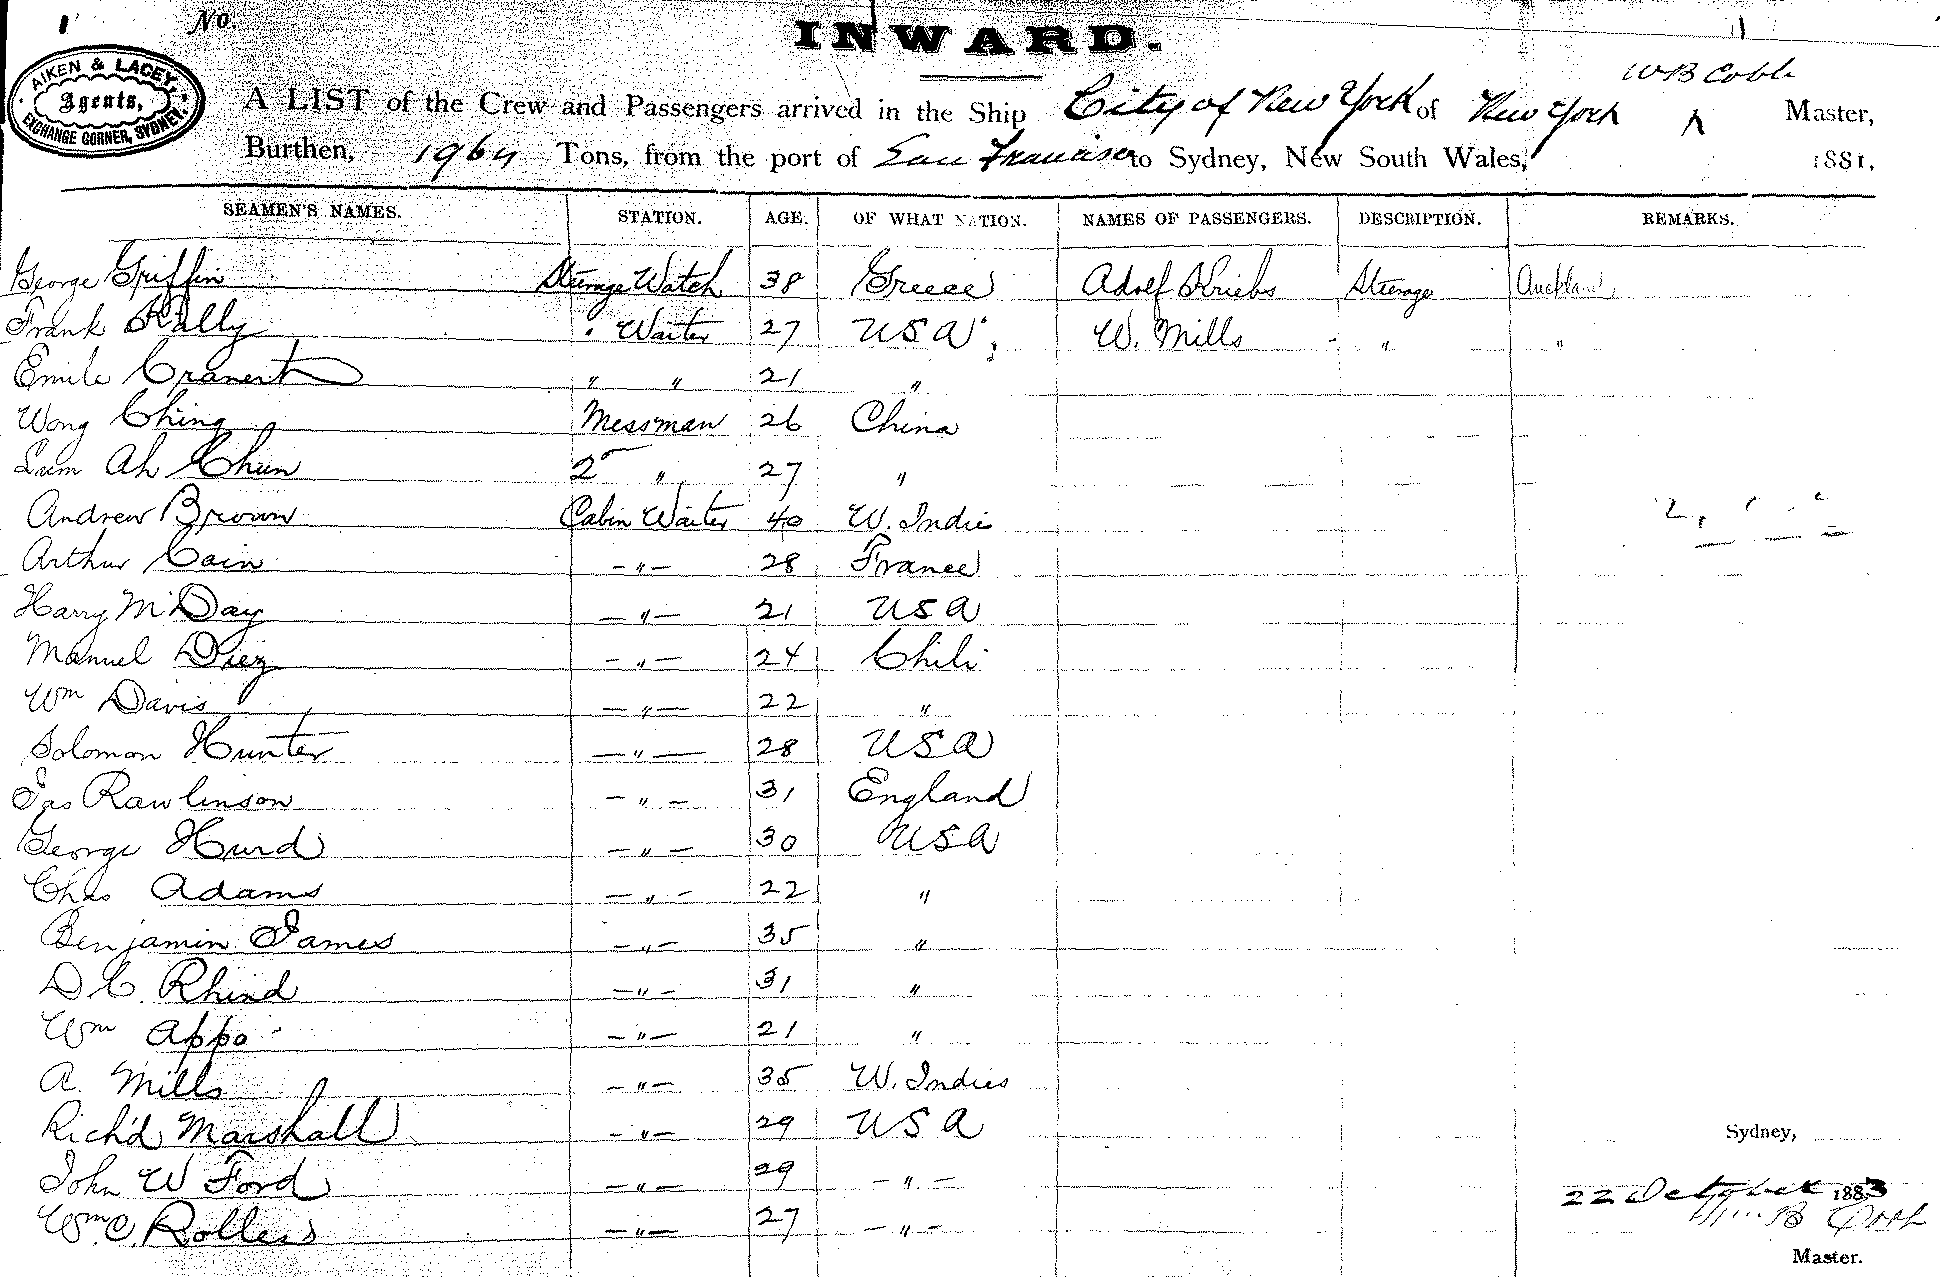 No.
INWARD.
AIKEN & LACEY,
Agents,
EXCHANGE CORNER, SYDNEY.
W B Cobb
A LIST of the Crew and Passengers arrived in the Ship City of New York of New York Master,
Burthen, 1964 Tons, from the port of San Francisco to Sydney, New South Wales, 1881,
SEAMEN'S NAMES. STATION. AGE. OF WHAT NATION. NAMES OF PASSENGERS. DESCRIPTION. REMARKS.
George Griffin Steerage Watch 38 Greece Adolf Steerage Auckland
Frank Rally " Waiter 27 USA W. Mills " "
Emile Cranert " " 21 "
Wong Ching Messman 26 China
Lum Ah Chun 2 " 27 "
Andrew Brown Cabin Waiter 40 W. Indie
Arthur Cain -"- 28 France
Harry McDay -"- 21 USA
Manuel Diez -"- 24 Chili
Wm Davis -"- 22 "
Solomon Hunter -"- 28 USA
Jas Rawlinson -"- 31 England
George Hurd -"- 30 USA
Chas Adams -"- 22 "
Benjamin James -"- 35 "
D C. Rhind -"- 31 "
Wm Appo -"- 21 "
A. Mills -"- 35 W. Indies
Rich'd Marshall -"- 29 USA
John W Ford -"- 29 -"-
Wm C. Rollers -"- 27 -"-
Sydney,
22 October 1883
Wm B Cobb
Master.